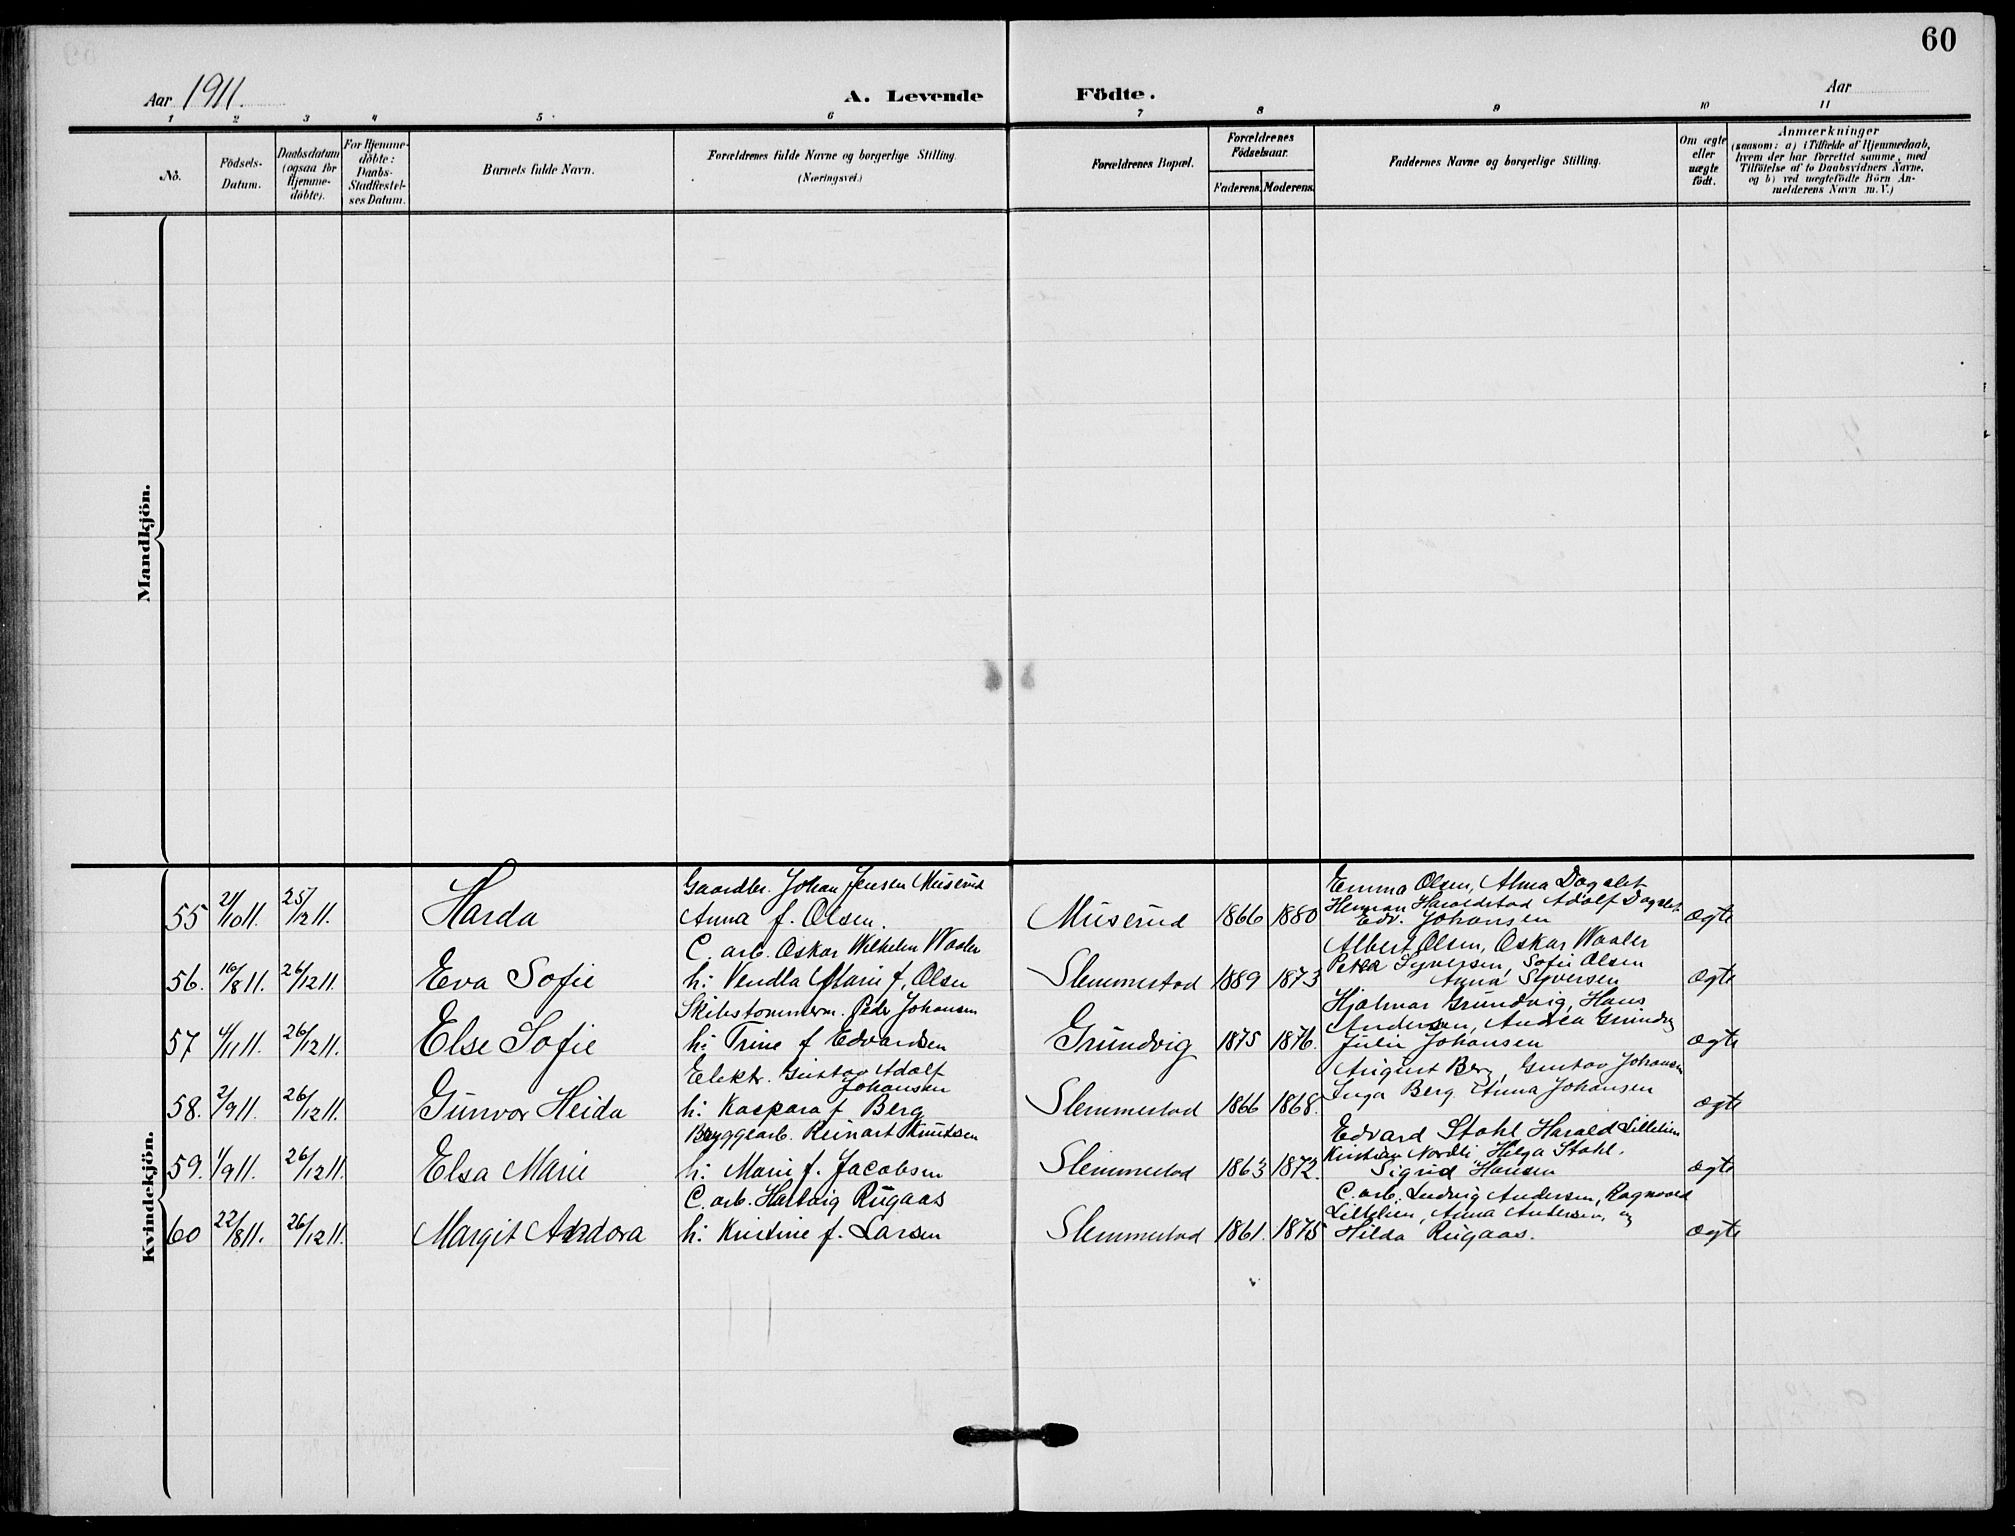 60
Aar 1911.
A. Levende Födte.
Aar
1 2 3 4 5 6 7 8 9 10 11
No.
Födsels-
Datum.
Daabsdatum
(ogsaa for
Hjemme-
döbte).
For Hjemme-
döbte:
Daabs-
Stadfæstel-
ses Datum.
Barnets fulde Navn.
Forældrenes fulde Navne og borgerlige Stilling.
(Næringsvei.)
Forældrenes Bopæl.
Forældrenes
Födselsaar.
Faderens. Moderens.
Faddernes Navne og borgerlige Stilling.
Om ægte
eller
uægte
födt.
Anmærkninger
(saasom: a) i Tilfælde af Hjemmedaab,
hvem der har forrettet samme, med
Tilföielse af to Daabsvidners Navne,
og b) ved uægtefödte Börn An-
melderens Navn m. V.)
Mandkjön.
Kvindekjön.
55 21/10 11. 25/12 11. Harda
Gaardbr. Johan Jensen Muserud
Anna f. Olsen.
Muserud 1866 1880
Emma Olsen, Alma Dagslet
Herman Haroldstad Adolf Dagslet
Edv. Johansen
ægte
56. 16/8 11. 26/12 11. Eva Sofie
C. arb. Oskar Wilhelm Waaler
h: Vendla Marie f. Olsen
Slemmestad 1889 1873
Albert Olsen, Oskar Waaler
Petra Syversen, Sofie Olsen
Anna Syversen
ægte
57 4/11 11. 26/12 11. Else Sofie
Skibstømmerm. Peder Johansen
h: Trine f Edvardsen
Grundvig 1875 1876.
Hjalmar Grundvig, Hans
Andersen, Andrea Grundvig
Julie Johansen
ægte
58. 2/9 11. 26/12 11. Gunvor Heida
Elektr. Gustav Adolf
Johansen
h: Kaspara f Berg
Slemmestad 1866 1868.
August Berg, Gustav Johansen
Inga Berg Anna Johansen
ægte
59. 1/9 11. 26/12 11. Elsa Marie
Bryggearb. Reinart Knutsen
h: Marie f. Jacobsen
Slemmestad 1863 1872.
Edvard Stahl Harald Lillelien
Kristian Nordli, Helga Stahl.
Sigrid Hansen
ægte
60 22/8 11. 26/12 11. Margit Andora
C. arb. Hartvig Rugaas
h: Kristine f. Larsen
Slemmestad 1861. 1875
C. arb. Ludvig Andersen, Ragnvald
Lillelien, Anna Andersen, og
Hilda Rugaas.
ægte